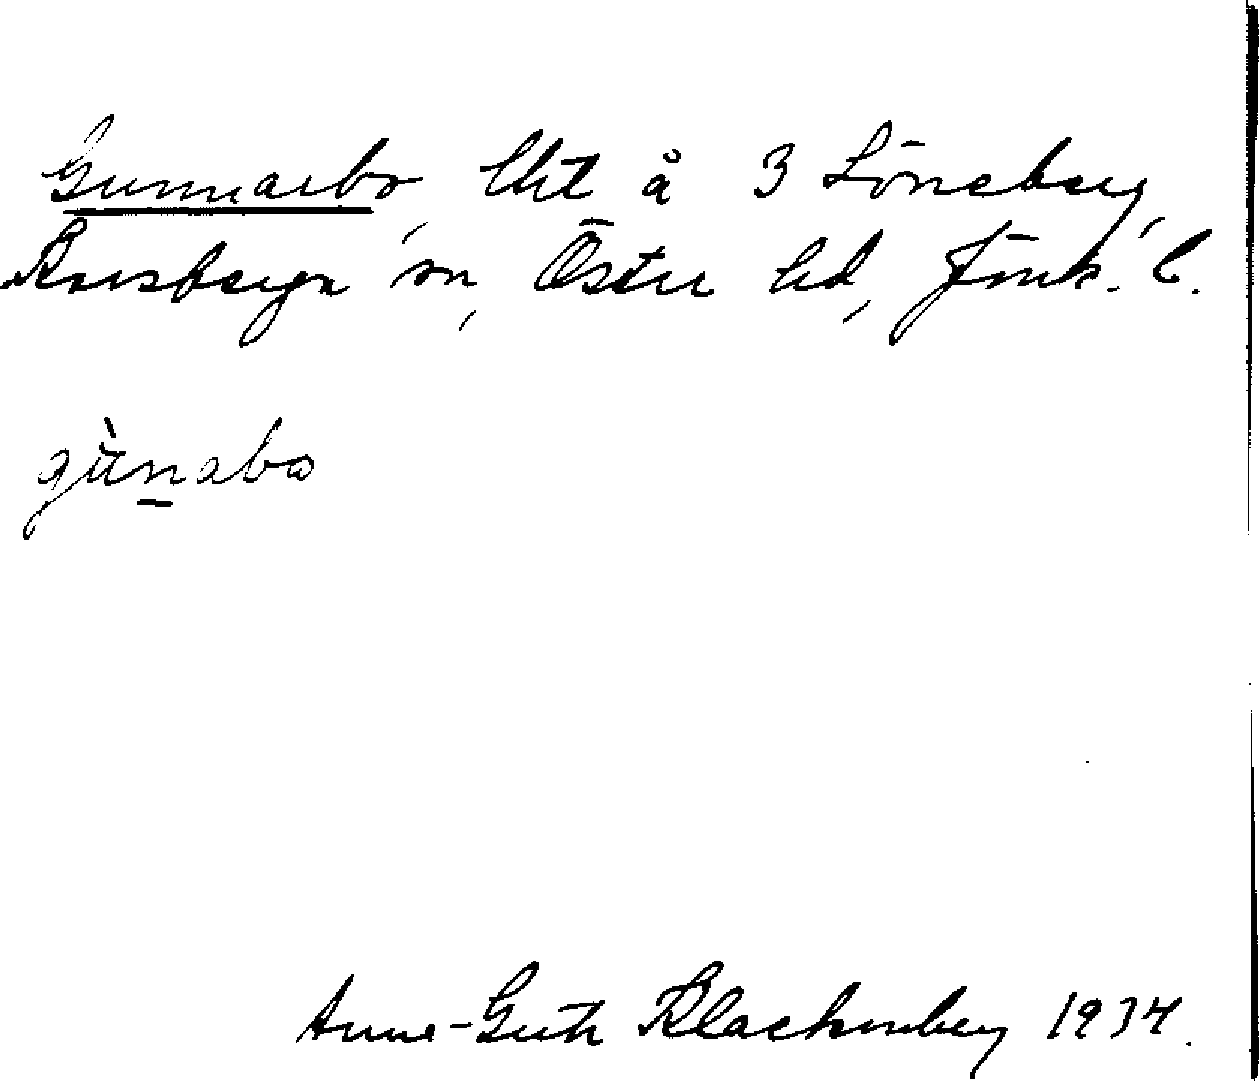 Gunnarbo, lht å 3 Löneberg,
Korsberga sn, Östra hd, Jönk. l.
gùnabo
Anna-Greta Klackenberg 1934.